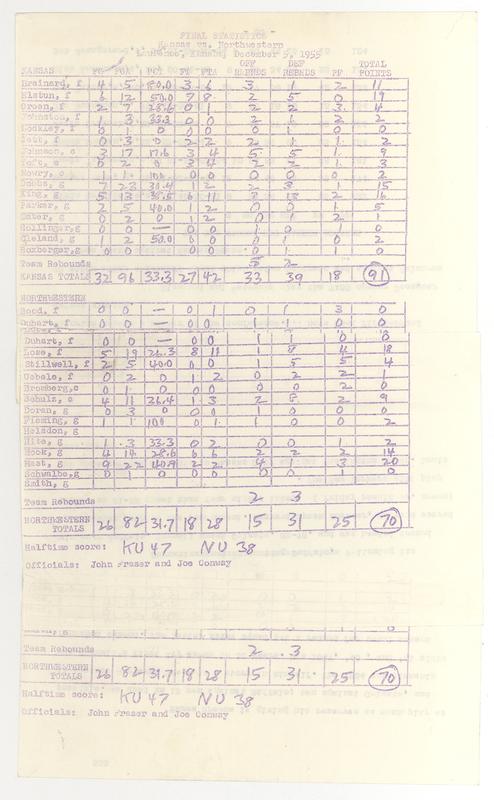 FINAL STATISTICS
Kansas vs. Northwestern
Lawrence, Kansas, December 5, 1955
OFF DEF TOTAL
KANSAS FG FGA PCT FT FTA REBNDS REBNDS PF POINTS
Brainard, f 4 5 80.0 3 6 3 1 2 11
Elstun, f 6 12 50.0 7 8 2 5 0 19
Green, f 2 7 28.6 0 1 2 2 3 4
Johnston, f 1 3 33.3 0 0 2 1 2 2
0 1 0 0 0 0 1 0 0
0 3 0 2 2 2 1 1 2
Johnson, c 3 17 17.6 3 4 5 5 1 9
0 2 0 3 4 2 2 1 3
Mowry, c 1 1 100. 0 0 0 0 0 2
Dobbs, g 7 23 30.4 1 2 2 3 1 15
King, g 5 13 38.5 6 11 2 16
Parker, g 2 5 40.0 1 2 0 0 1 5
Dater, g 0 2 0 1 2 0 1 2 1
Hollinger, g 0 0 — 0 0 1 0 1 0
Cleland, g 1 2 50.0 0 0 0 1 0 2
Hoxberger, g 0 0 0 0 0 1 1 0
Team Rebounds 5 2
KANSAS TOTALS 32 96 33.3 27 42 33 39 18 91
NORTHWESTERN
Hood, f 0 0 — 0 1 0 1 3 0
Duhart, f 0 0 — 0 0 1 1 0 0
Duhart, f 0 0 — 0 0 1 1 0 0
Lose, f 5 19 26.3 8 11 1 8 4 18
Stillwell, f 2 5 40.0 0 0 5 5 4
Uebele, f 0 2 0 1 2 0 2 2 1
Bromberg, c 0 1 0 0 0 0 0 2 0
Schulz, c 4 11 1 3 2 8 2 9
Doran, g 0 3 0 0 0 1 0 0 0
Fleming, g 1 1 100 0 1 1 0 0 2
Helsdon, g
Hite, g 1 3 33.3 0 2 0 0 1 2
Rook, g 4 14 28.6 6 6 2 2 2 14
Mast, g 9 22 40.9 2 2 4 1 3 20
Schwalbe, g 0 1 0 0 0 0 0 1 0
Smith, g
Team Rebounds 2 3
NORTHWESTERN
TOTALS 26 82 31.7 18 28 15 31 25 70
Halftime score: KU 47 NU 38
Officials: John Fraser and Joe Conway
Team Rebounds 2 3
NORTHWESTERN
TOTALS 26 82 31.7 18 28 15 31 25 70
Halftime score: KU 47 NU 38
Officials: John Fraser and Joe Conway